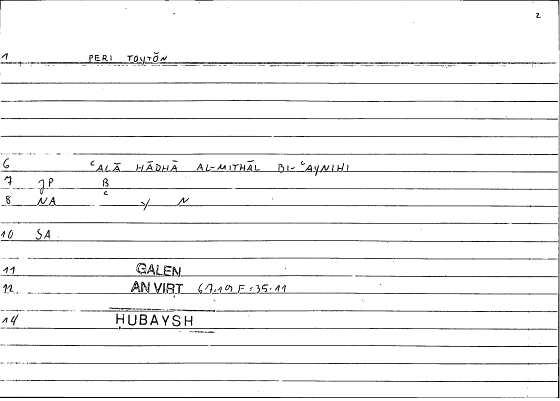 2
1 PERI TOYTŌN
6 ʿALĀ HĀDHĀ AL-MITHĀL BI-ʿAYNIHI
7 JP B
8 NA C y N
10 SA
11 GALEN
12 AN VIRT
14 ḤUBAYSH